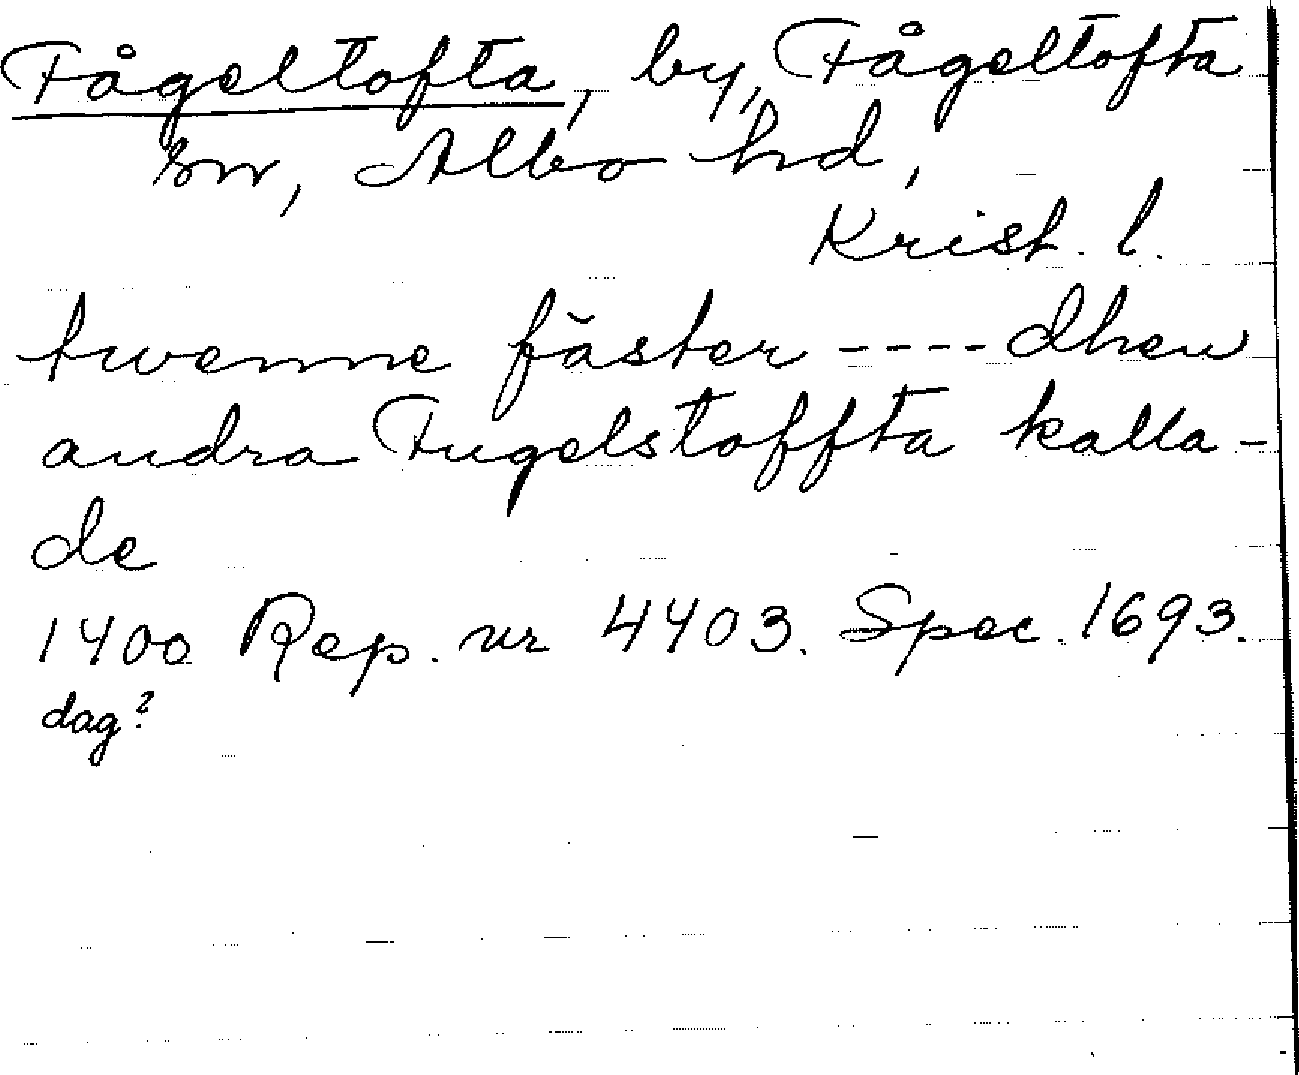 Fågeltofta, by, Fågeltofta
sn, Albo hd,
Krist. l.
twenne fäster ---- dhen
andra Fugelstoffta kalla-
de
1400 Rep. nr 4403. Spec. 1693.
dag?